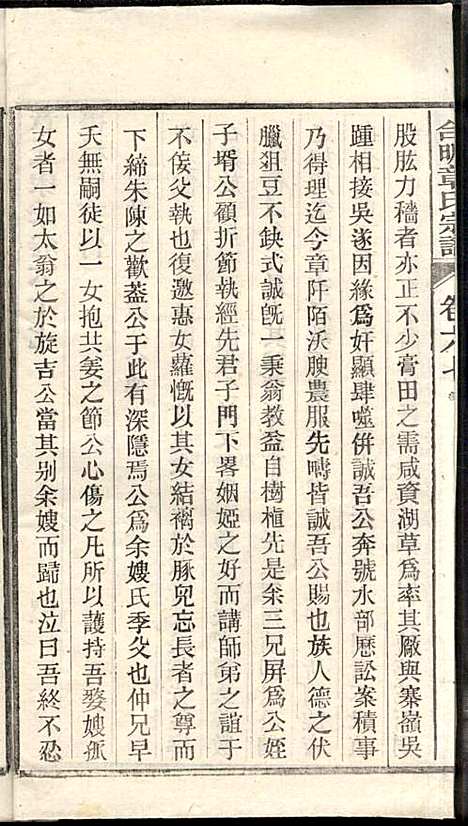 合明章氏宗譜 卷六七
股肱力穡者亦正不少膏田之需咸資湖草爲率其厰與寨嶺吳
踵相接吳遂因緣爲奸顯肆噬併誠吾公奔號水部厯訟案積事
乃得理迄今章阡陌沃腴農服先疇皆誠吾公賜也族人德之伏
臘爼豆不缺式誠旣一秉翁教益自樹植先是余三兄屏爲公姪
子壻公顧折節執經先君子門下畧姻婭之好而講師弟之誼于
不佞父執也復邀惠女蘿慨以其女結褵於豚兒忘長者之尊而
下締朱陳之歡葢公于此有深隱焉公爲余嫂氏季父也仲兄早
夭無嗣徒以一女抱共姜之節公心傷之凡所以護持吾嫠嫂孤
女者一如太翁之於旋吉公當其别余嫂而歸也泣曰吾終不忍